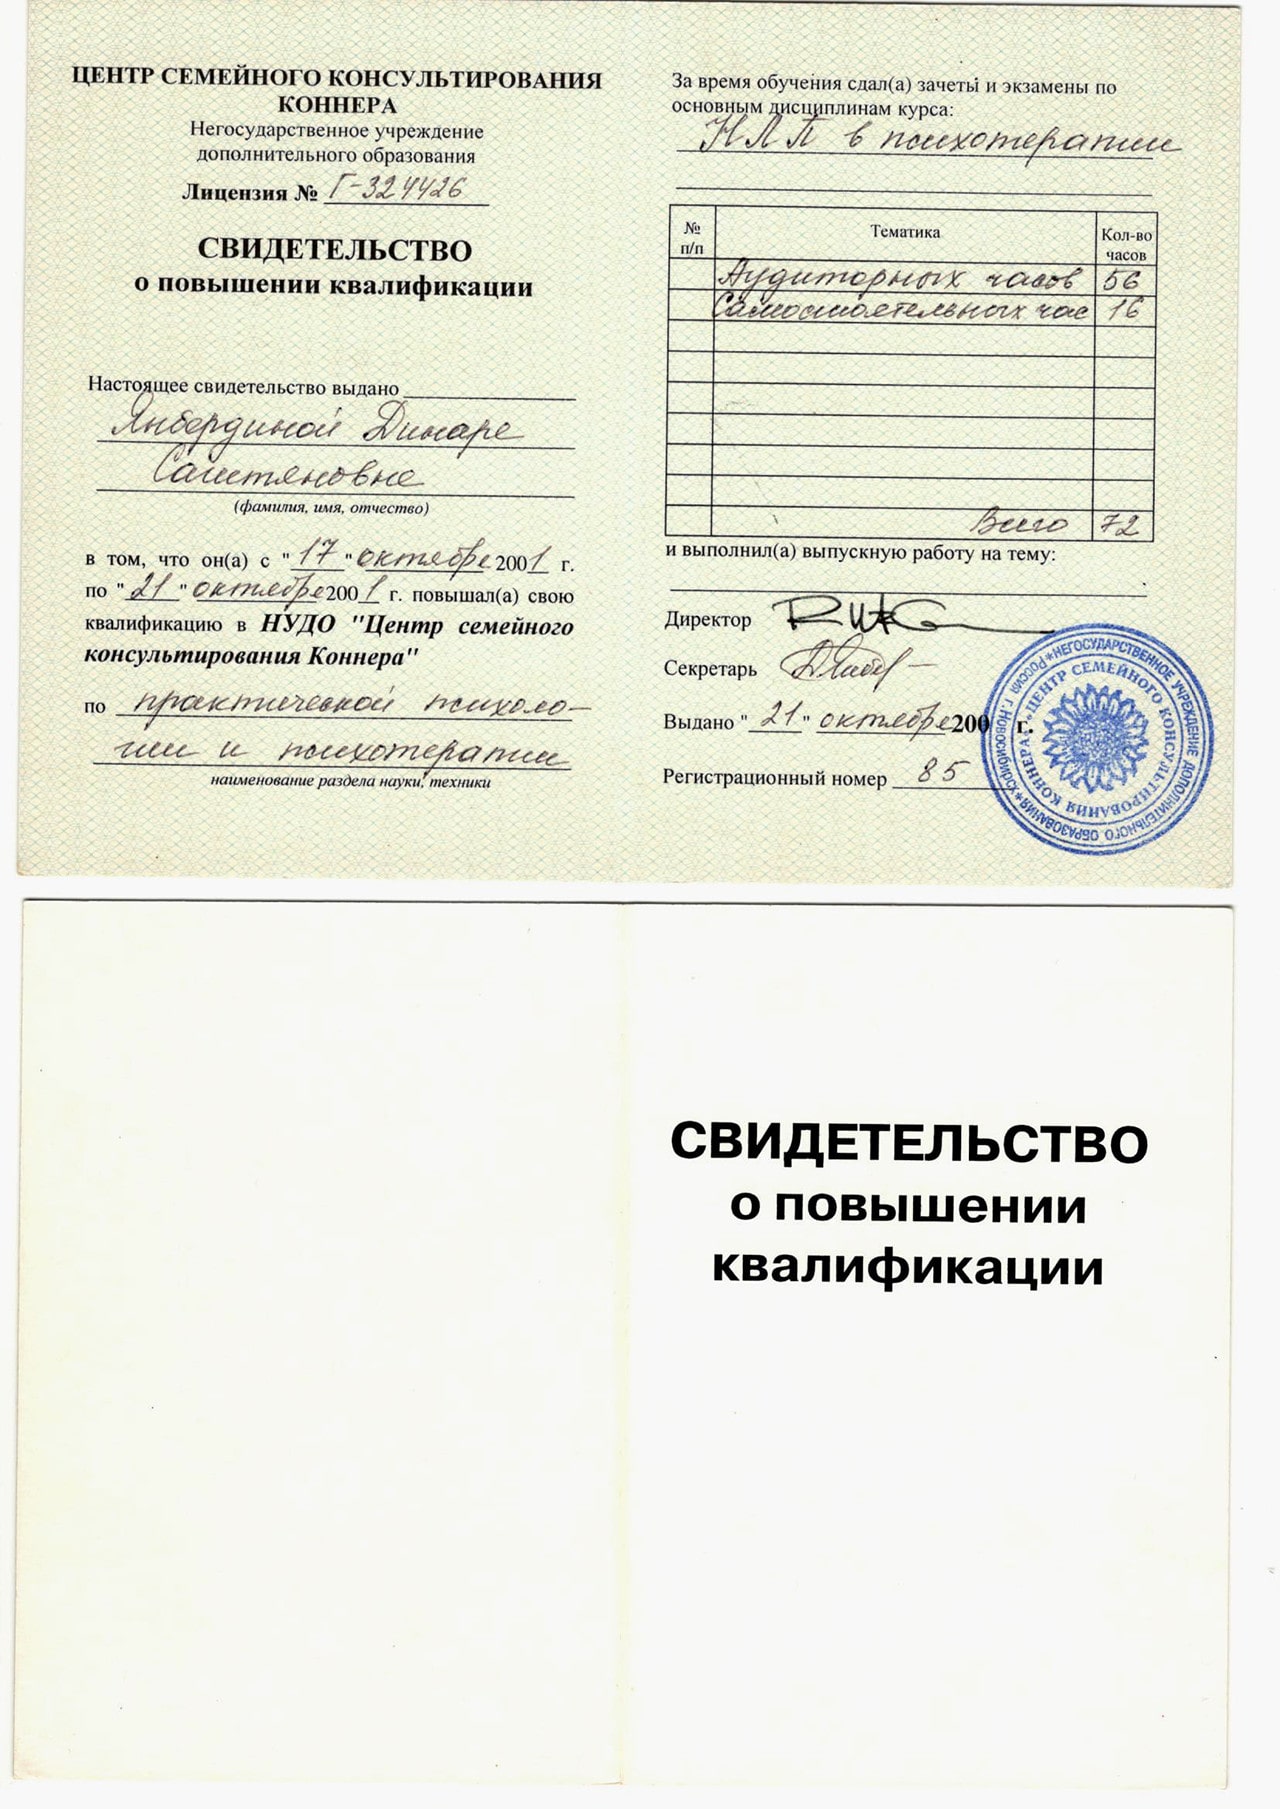 ЦЕНТР СЕМЕЙНОГО КОНСУЛЬТИРОВАНИЯ
КОННЕРА
Негосударственное учреждение
дополнительного образования
Лицензия № Г-324426
СВИДЕТЕЛЬСТВО
о повышении квалификации
Настоящее свидетельство выдано
Янбердиной Динаре
Саитяновне
(фамилия, имя, отчество)
в том, что он(а) с "17" октября 2001 г.
по "21" октября 2001 г. повышал(а) свою
квалификацию в НУДО "Центр семейного
консультирования Коннера"
по практической психоло-
гии и психотерапии
наименование раздела науки, техники
За время обучения сдал(а) зачеты и экзамены по
основным дисциплинам курса:
НЛП в психотерапии
№ п/п Тематика Кол-во часов
Аудиторных часов 56
Самостоятельных час 16
Всего 72
и выполнил(а) выпускную работу на тему:
Директор
Секретарь
Выдано "21" октября 200 г.
Регистрационный номер 85
РОССИЯ * НЕГОСУДАРСТВЕННОЕ УЧРЕЖДЕНИЕ ДОПОЛНИТЕЛЬНОГО ОБРАЗОВАНИЯ * Г. НОВОСИБИРСК
"ЦЕНТР СЕМЕЙНОГО КОНСУЛЬТИРОВАНИЯ КОННЕРА"
СВИДЕТЕЛЬСТВО
о повышении
квалификации